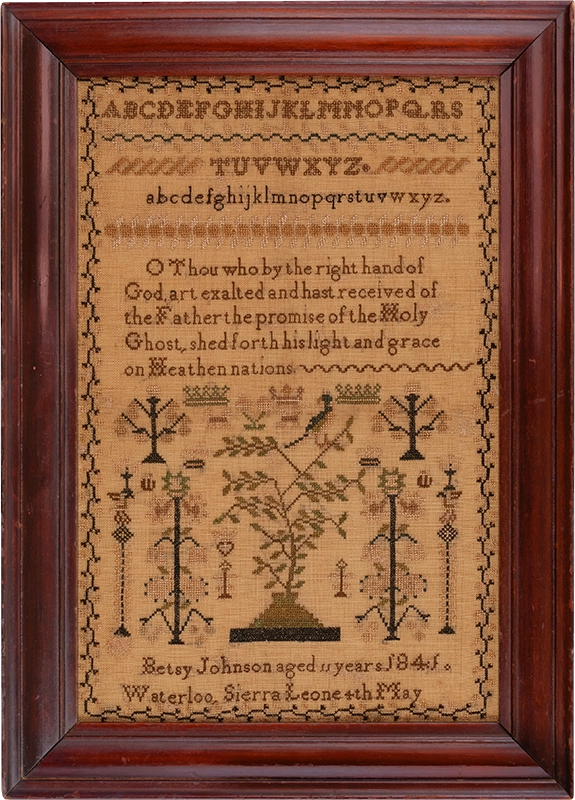 ABCDEFGHIJKLMNOPQRS
TUVWXYZ.
abcdefghijklmnopqrstuvwxyz.
O Thou who by the right hand of
God, art exalted and hast received of
the Father the promise of the Holy
Ghost, shed forth his light and grace
on Heathen nations.
Betsy Johnson aged 11 years 1841.
Waterloo, Sierra Leone 4th May